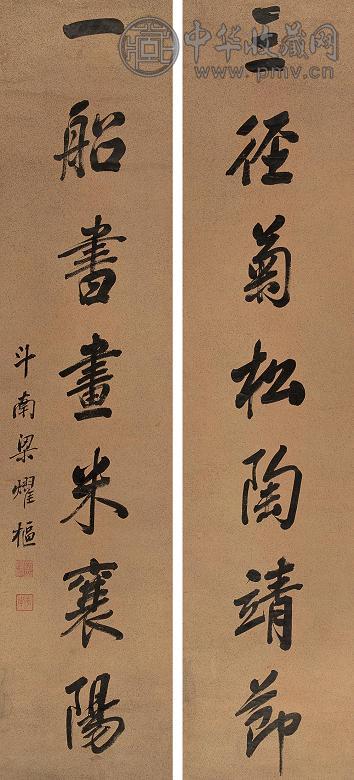 三徑菊松陶靖節
一船書畫米襄陽
斗南梁燿樞
中华收藏网
www.pmv.cn